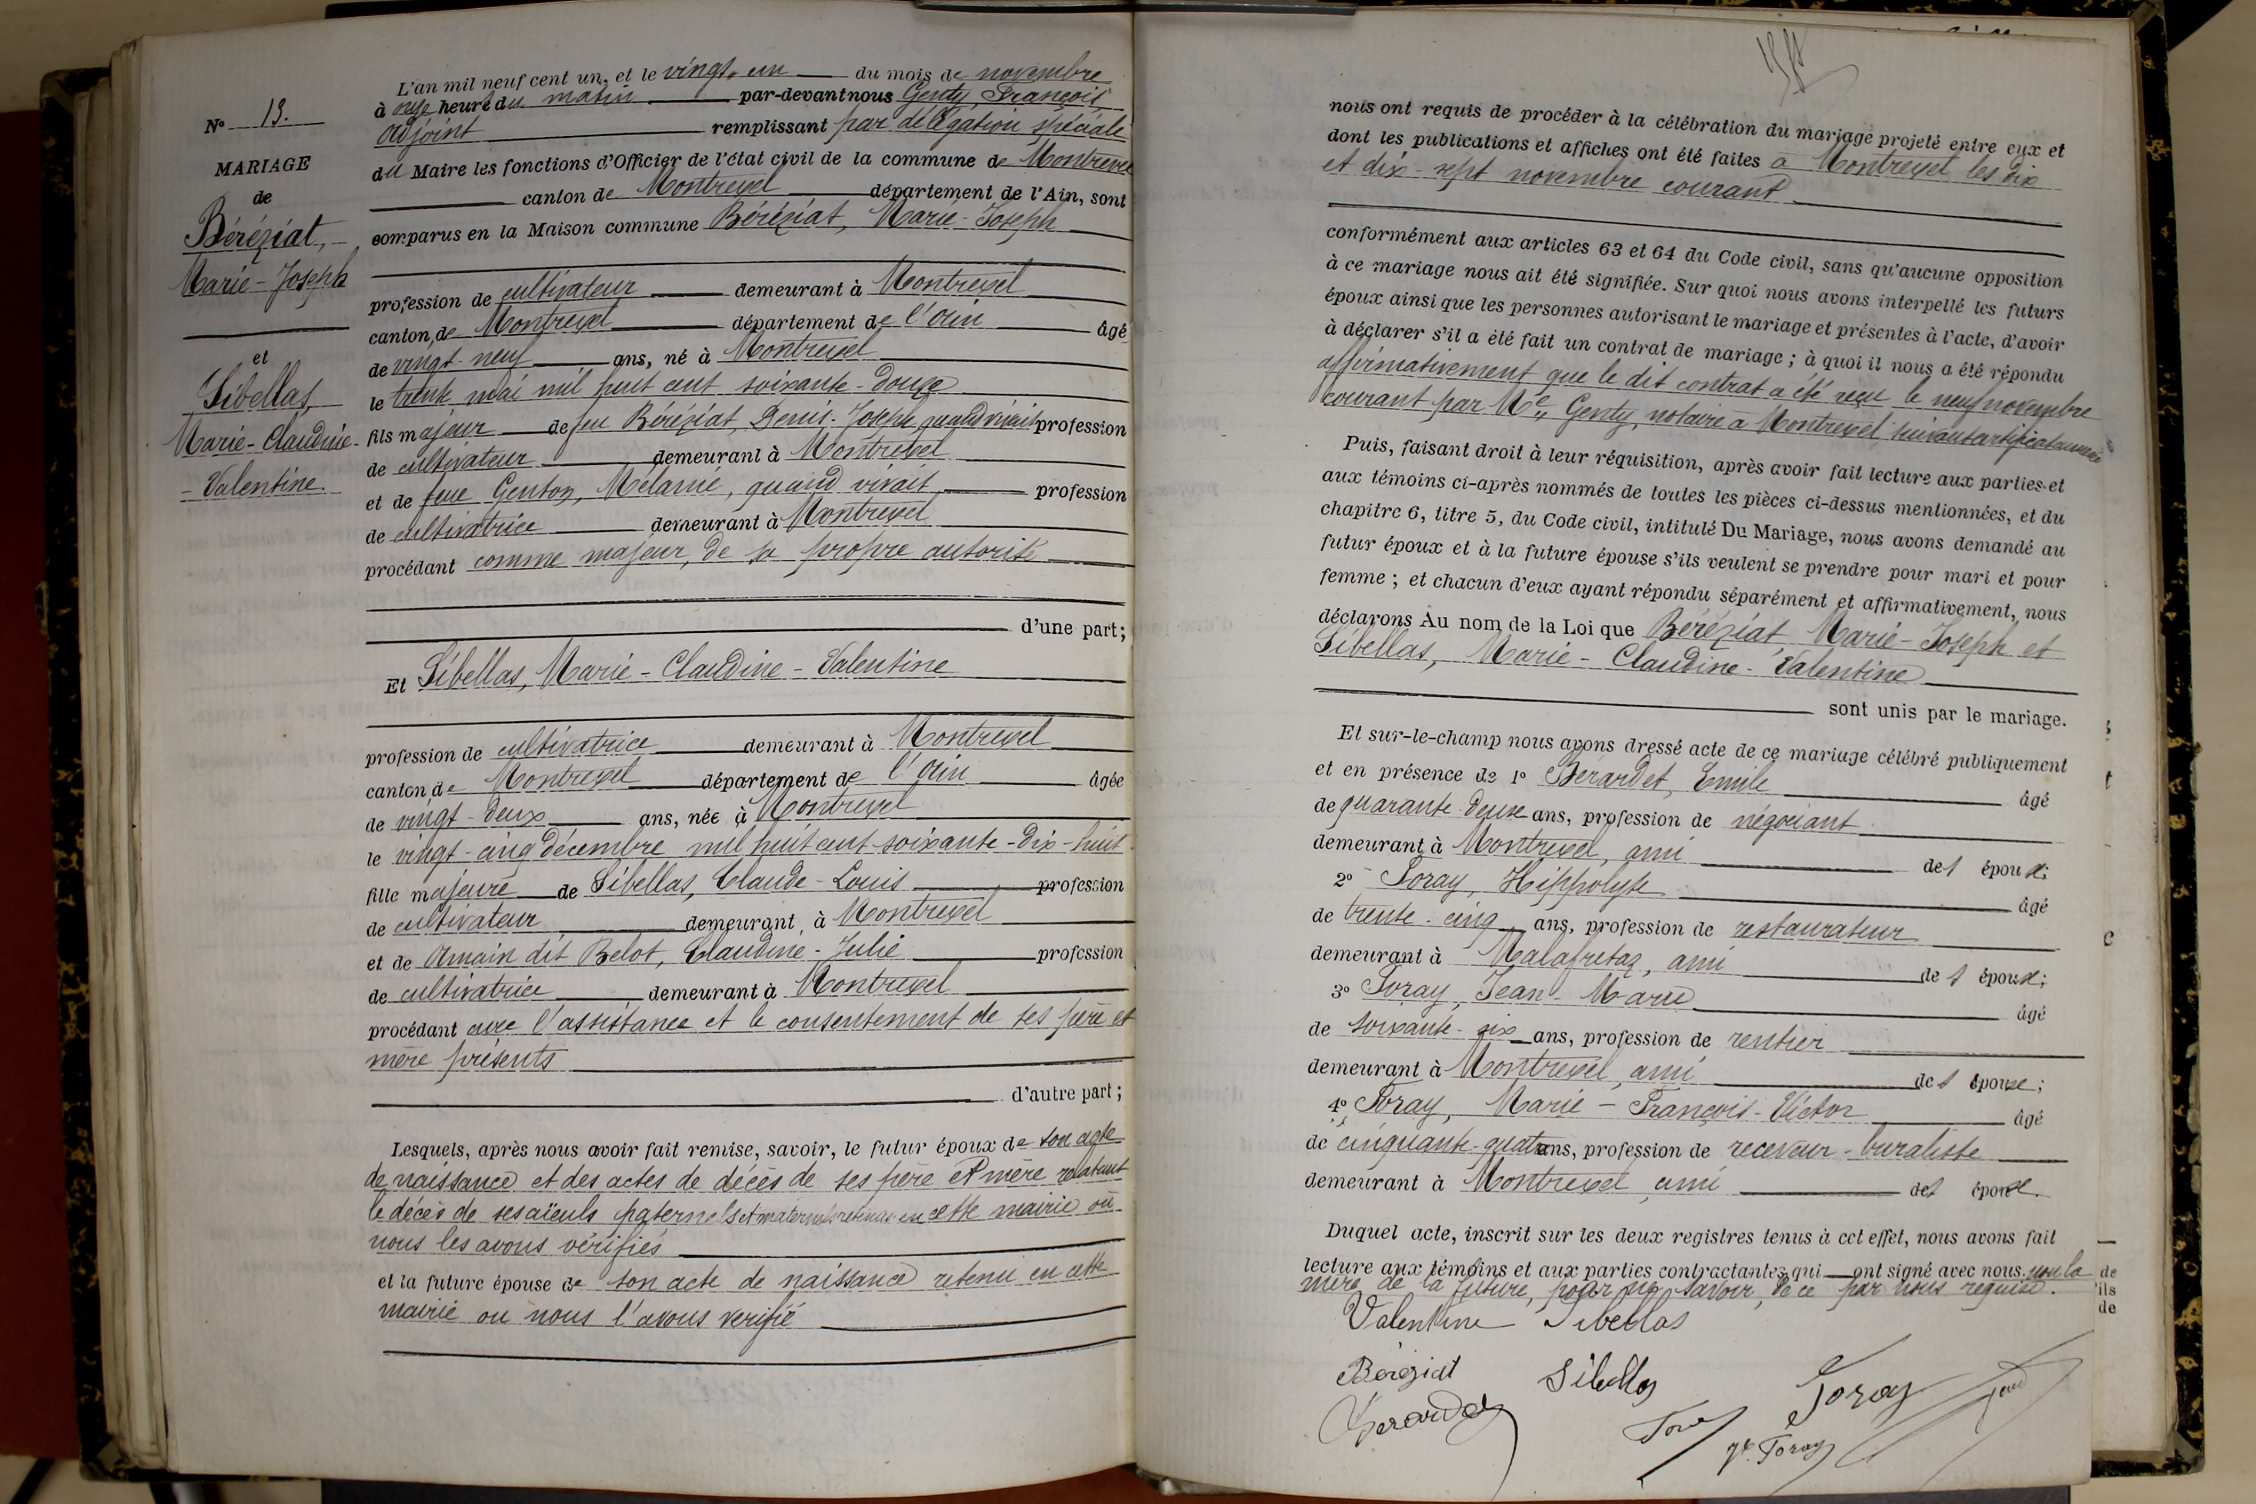 N° 13.
MARIAGE
de
Béréziat,
Marie-Joseph
et
Sibellas,
Marie-Claudine-
Valentine.
L'an mil neuf cent un, et le vingt-un du mois de novembre
à onze heures du matin par-devant nous Genty, François
adjoint remplissant par délégation spéciale
du Maire les fonctions d'Officier de l'état civil de la commune de Montrevel
canton de Montrevel département de l'Ain, sont
comparus en la Maison commune Béréziat, Marie-Joseph
profession de cultivateur demeurant à Montrevel
canton de Montrevel département de l'Ain âgé
de vingt neuf ans, né à Montrevel
le trente mai mil huit cent soixante-douze
fils majeur de feu Béréziat, Denis-Joseph quand vivait profession
de cultivateur demeurant à Montrevel
et de feue Genton, Mélanie, quand vivait profession
de cultivatrice demeurant à Montrevel
procédant comme majeur, de sa propre autorité
d'une part;
Et Sibellas, Marie-Claudine-Valentine
profession de cultivatrice demeurant à Montrevel
canton de Montrevel département de l'Ain âgée
de vingt-deux ans, née à Montrevel
le vingt-cinq décembre mil huit cent soixante-dix-huit
fille majeure de Sibellas, Claude-Louis profession
de cultivateur demeurant à Montrevel
et de Amain dit Belot, Claudine-Julie profession
de cultivatrice demeurant à Montrevel
procédant avec l'assistance et le consentement de ses père et
mère présents
d'autre part;
Lesquels, après nous avoir fait remise, savoir, le futur époux de son acte
de naissance et des actes de décès de ses père et mère relatant
le décès de ses aïeuls paternels et maternels retenus en cette mairie où
nous les avons vérifiés
et la future épouse de son acte de naissance retenu en cette
mairie ou nous l'avons verifié
nous ont requis de procéder à la célébration du mariage projeté entre eux et
dont les publications et affiches ont été faites à Montrevel les dix
et dix-sept novembre courant
conformément aux articles 63 et 64 du Code civil, sans qu'aucune opposition
à ce mariage nous ait été signifiée. Sur quoi nous avons interpellé les futurs
époux ainsi que les personnes autorisant le mariage et présentes à l'acte, d'avoir
à déclarer s'il a été fait un contrat de mariage; à quoi il nous a été répondu
affirmativement que le dit contrat a été reçu le neuf novembre
courant par Me Genty, notaire à Montrevel suivant certificat annexé
Puis, faisant droit à leur réquisition, après avoir fait lecture aux parties et
aux témoins ci-après nommés de toutes les pièces ci-dessus mentionnées, et du
chapitre 6, titre 5, du Code civil, intitulé Du Mariage, nous avons demandé au
futur époux et à la future épouse s'ils veulent se prendre pour mari et pour
femme; et chacun d'eux ayant répondu séparément et affirmativement, nous
déclarons Au nom de la Loi que Béréziat Marie-Joseph et
Sibellas, Marie-Claudine-Valentine
sont unis par le mariage.
Et sur-le-champ nous avons dressé acte de ce mariage célébré publiquement
et en présence de 1° Bérardet, Emile âgé
de quarante deux ans, profession de négociant
demeurant à Montrevel, ami des époux;
2° Foray, Hippolyte âgé
de trente-cinq ans, profession de restaurateur
demeurant à Malafretaz, ami des époux;
3° Foray, Jean-Marie âgé
de soixante-six ans, profession de rentier
demeurant à Montrevel, ami des époux;
4° Foray, Marie-François-Victor âgé
de cinquante-quatre ans, profession de receveur-buraliste
demeurant à Montrevel, ami des époux.
Duquel acte, inscrit sur les deux registres tenus à cet effet, nous avons fait
lecture aux témoins et aux parties contractantes qui ont signé avec nous, non la
mère de la future, pour ne savoir, de ce par nous requise.
Valentine Sibellas
Béréziat Sibellas Foray
Bérardet
Foray
de
'ils
de